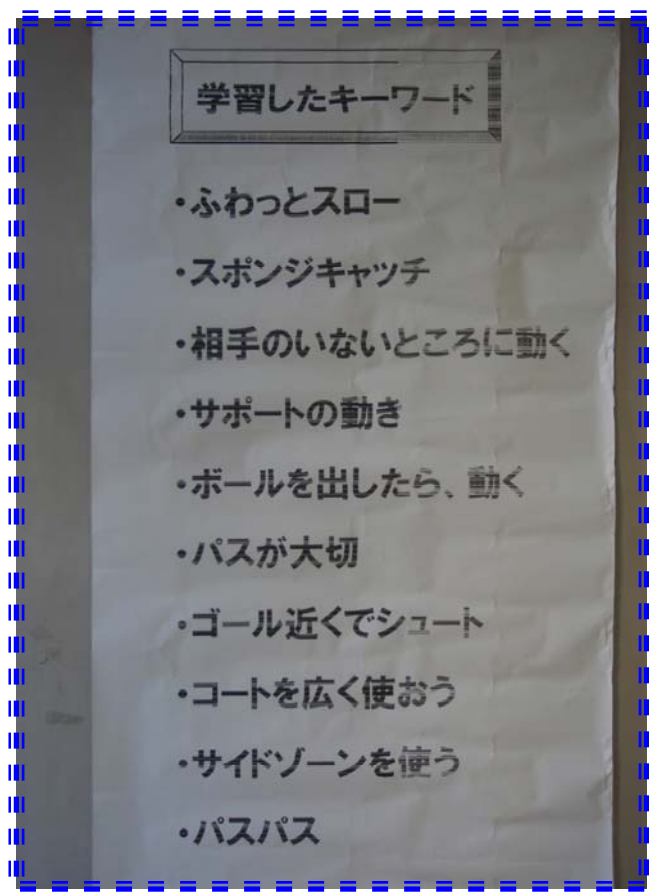 学習したキーワード
・ふわっとスロー
・スポンジキャッチ
・相手のいないところに動く
・サポートの動き
・ボールを出したら、動く
・パスが大切
・ゴール近くでシュート
・コートを広く使おう
・サイドゾーンを使う
・パスパス